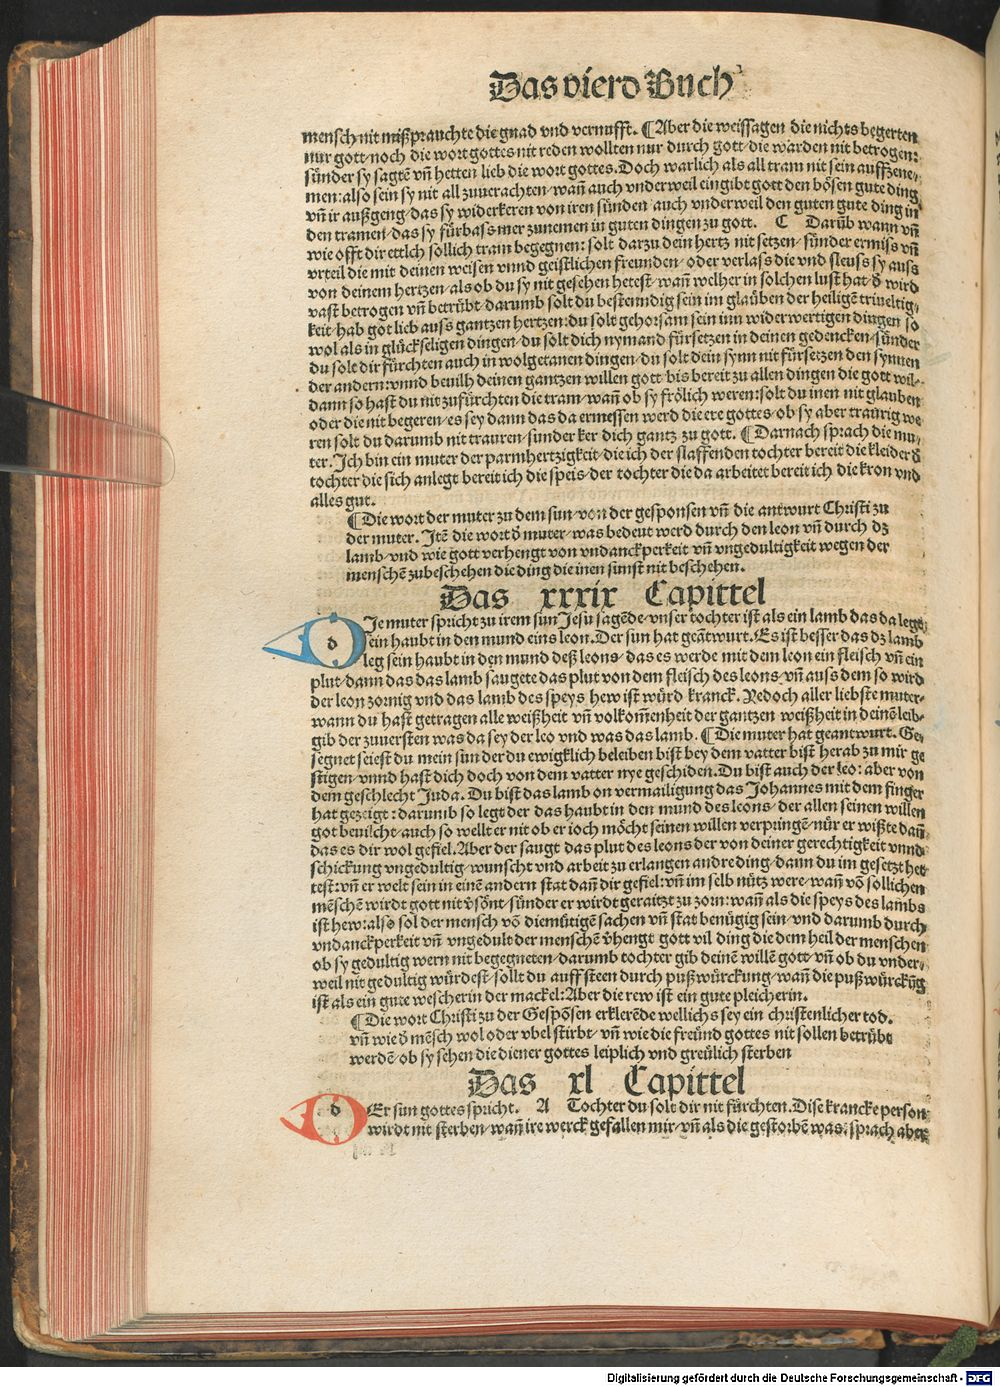 Das vierd Buch
mensch nit mißprauchte die gnad vnd vernufft. ¶ Aber die weissagen die nichts begerten
nur gott/noch die wort gottes nit reden wollten nur durch gott/die warden nit betrogen:
sünder sy sagtē vñ hetten lieb die wort gottes. Doch warlich als all tram nit sein auffzene-
men: also sein sy nit all zuuerachten/wañ auch vnderweil eingibt gott den bösen gute ding
vñ ir außgeng/das sy widerkeren von iren sünden/auch vnderweil den guten gute ding in
den tramen/das sy fürbass mer zunemen in guten dingen zu gott. C Darüb wann vñ
wie offt dir ettlich sollich tram begegnen: solt darzu dein hertz nit setzen/sünder ermiss vñ
vrteil die mit deinen weisen vnnd geistlichen freunden/oder verlass die vnd sleuss sy auss
von deinem hertzen/als ob du sy nit gesehen hetest/wañ welher in solchen lust hat/d̕ wird
vast betrogen vñ betrübt/darumb solt du bestenndig sein im glaüben der heiligē triueltig-
keit/hab got lieb auss gantzen hertzen: du solt gehorsam sein inn widerwertigen dingen so
wol als in glückseligen dingen/du solt dich nymand fürsetzen in deinen gedencken/sünder
du solt dir fürchten auch in wolgetanen dingen/du solt dein synn nit fürsetzen den synnen
der andern: vnnd beuilh deinen gantzen willen gott/bis bereit zu allen dingen die gott wil/
dann so hast du nit zufürchten die tram/wañ ob sy frölich weren: solt du inen nit glauben
oder die nit begeren/es sey dann das da ermessen werd die ere gottes/ob sy aber traurig we
ren solt du darumb nit trauren/sunder ker dich gantz zu gott. ¶ Darnach sprach die mu-
ter. Ich bin ein muter der parmhertzigkeit/die ich der slaffenden tochter bereit die kleider/d̕
tochter die sich anlegt bereit ich die speis/der tochter die da arbeitet bereit ich die kron vnd
alles gut.
¶ Die wort der muter zu dem sun/von der gesponsen vñ die antwurt Christi zu
der muter. Itē die wort d̕ muter/was bedeut werd durch den leon vñ durch dz
lamb/vnd wie gott verhengt von vndanckperkeit vñ vngedultigkeit wegen der
menschē zubeschehen die ding die inen sunst nit beschehen.
Das xxxix Capittel
d Ie muter spricht zu irem sun Jesu sagēde/vnser tochter ist als ein lamb das da lege
sein haubt in den mund eins leon. Der sun hat geātwurt. Es ist besser das dz lamb
leg sein haubt in den mund deß leons/das es werde mit dem leon ein fleisch vñ ein
plut/dann das das lamb saugete das plut von dem fleisch des leons/vñ auss dem so wird
der leon zornig vnd das lamb des speys hew ist würd kranck. Yedoch aller liebste muter/
wann du hast getragen alle weißheit vñ volkom̄enheit der gantzen weißheit in deinē leib/
gib der zuuersten was da sey der leo vnd was das lamb. ¶ Die muter hat geantwurt. Ge-
segnet seiest du mein sün der du ewigklich beleiben bist bey dem vatter bist herab zu mir ge
stigen/vnnd hast dich doch von dem vatter nye geschiden. Du bist auch der leo: aber von
dem geschlecht Juda. Du bist das lamb on vermailigung das Johannes mit dem finger
hat gezeigt: darumb so legt der das haubt in den mund des leons/der allen seinen willen
got beuilcht/auch so wellt er nit ob er ioch möcht seinen willen verpringē/nür er wißte dañ
das es dir wol gefiel. Aber der saugt das plut des leons der von deiner gerechtigkeit vnnd
schickung vngedultig/wunscht vnd arbeit zu erlangen andre ding/dann du im gesetzt het
test: vñ er welt sein in einē andern stat dañ dir gefiel: vñ im selb nütz were/wañ vō sollichen
mēschē wirdt gott nit v̕sönt/sünder er wirdt geraitzt zu zorn: wañ als die speys des lambs
ist hew: also sol der mensch vō diemütigē sachen vñ stat benügig sein/vnd darumb durch
vndanckperkeit vñ vngedult der menschē v̕hengt gott vil ding die dem heil der menschen
ob sy gedultig wern nit begegneten/darumb tochter gib deinē willē gott/vñ ob du vnder-
weil nit gedultig würdest/sollt du auffsteen durch pußwürckung/wañ die pußwürckūg
ist als ein gute wescherin der mackel: Aber die rew ist ein gute pleicherin.
¶ Die wort Christi zu der Gespōsen erklerēde wellichs sey ein christenlicher tod.
vñ wie d̕ mēsch wol oder vbel stirbt/vñ wie die freünd gottes nit sollen betrübt
werdē/ob sy sehen die diener gottes leiplich vnd greülich sterben
Das xl Capittel
d Er sun gottes spricht. A Tochter du solt dir nit fürchten. Dise krancke person
wirdt nit sterben/wañ ire werck gefallen mir/vñ als die gestorbē was. sprach aber
Digitalisierung gefördert durch die Deutsche Forschungsgemeinschaft - DFG